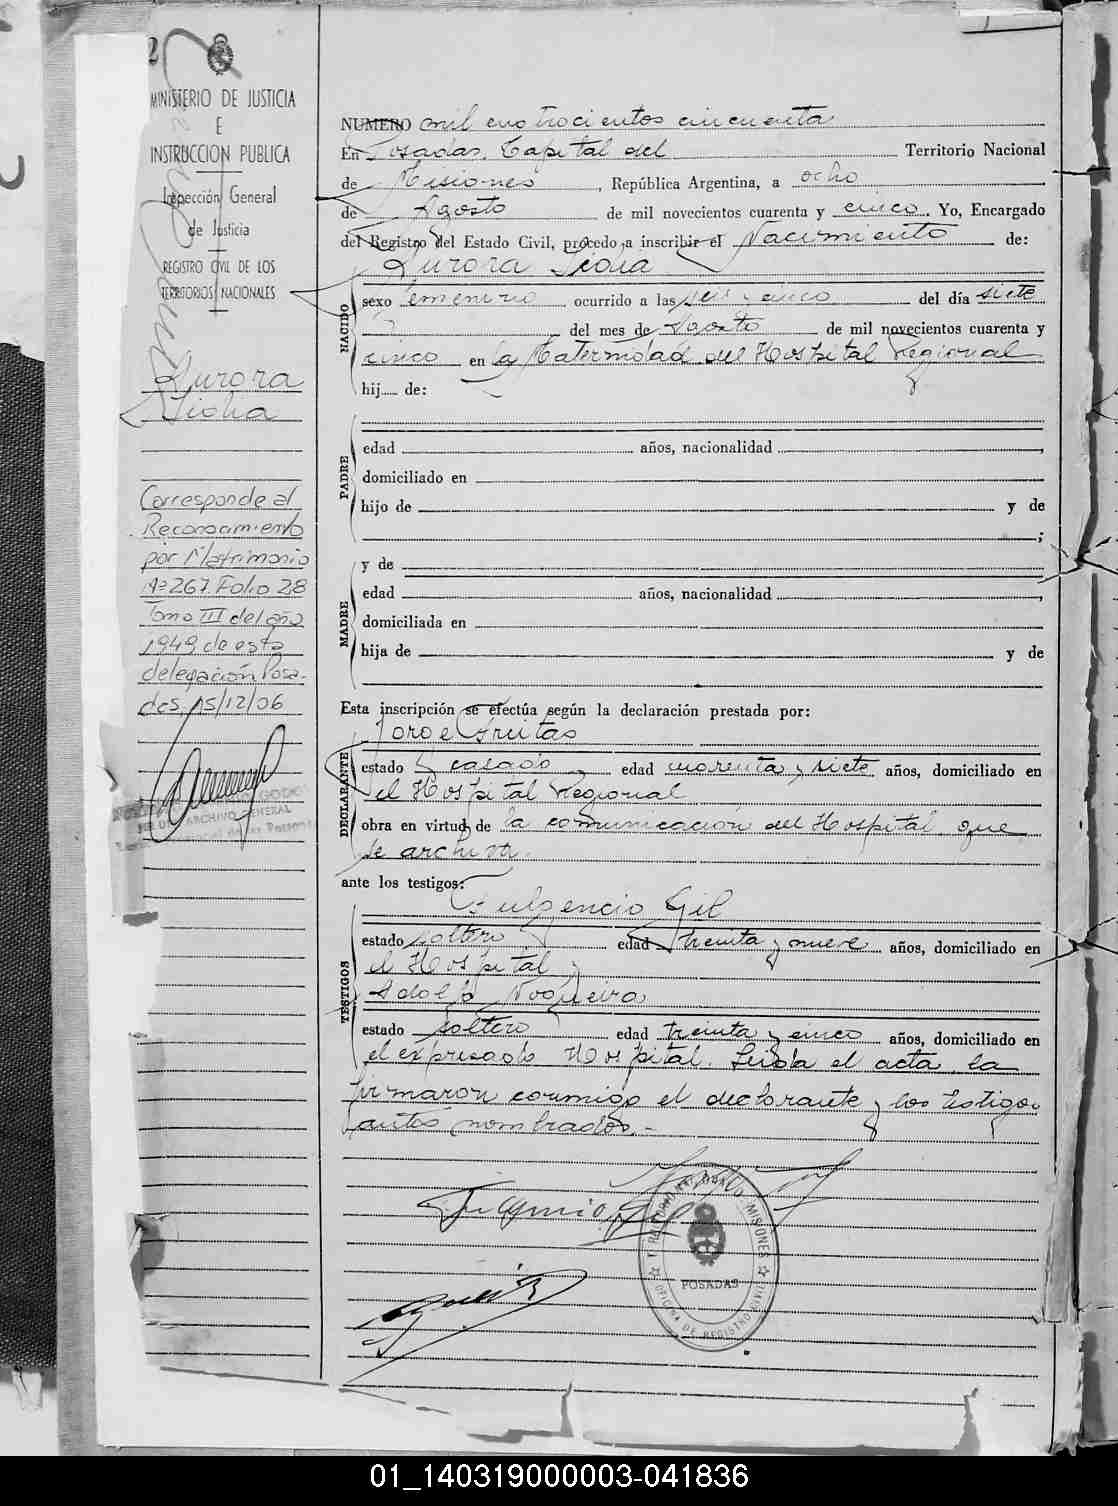 2
MINISTERIO DE JUSTICIA
E
INSTRUCCION PUBLICA
Inspección General
de Justicia
REGISTRO CIVIL DE LOS
TERRITORIOS NACIONALES
Aurora
Corresponde al
Reconocimiento
por Matrimonio
Nº 267. Folio 28
Tomo III del año
1949 de esta
delegación Posa-
das, 15/12/06
ARCHIVO GENERAL
NUMERO mil cuatrocientos cincuenta
En Posadas, Capital del Territorio Nacional
de Misiones, República Argentina, a ocho
de Agosto de mil novecientos cuarenta y cinco. Yo, Encargado
del Registro del Estado Civil, procedo a inscribir el Nacimiento de:
Aurora
NACIDO
sexo femenino ocurrido a las seis y cinco del día siete
del mes de Agosto de mil novecientos cuarenta y
cinco en la Maternidad del Hospital Regional
hij de:
PADRE
edad años, nacionalidad
domiciliado en
hijo de y de
;
MADRE
y de
edad años, nacionalidad
domiciliada en
hija de y de
Esta inscripción se efectúa según la declaración prestada por:
Jorge Freitas
DECLARANTE
estado casado edad cuarenta y siete años, domiciliado en
el Hospital Regional
obra en virtud de la comunicación del Hospital que
se archiva.
ante los testigos:
Fulgencio Gil
TESTIGOS
estado soltero edad treinta y nueve años, domiciliado en
el Hospital y
Adolfo Nogueira
estado soltero edad treinta y cinco años, domiciliado en
el expresado Hospital. Leida el acta, la
firmaron conmigo el declarante y los testigos
antes nombrados.-
MISIONES
POSADAS
OFICINA DE REGISTRO
01_140319000003-041836